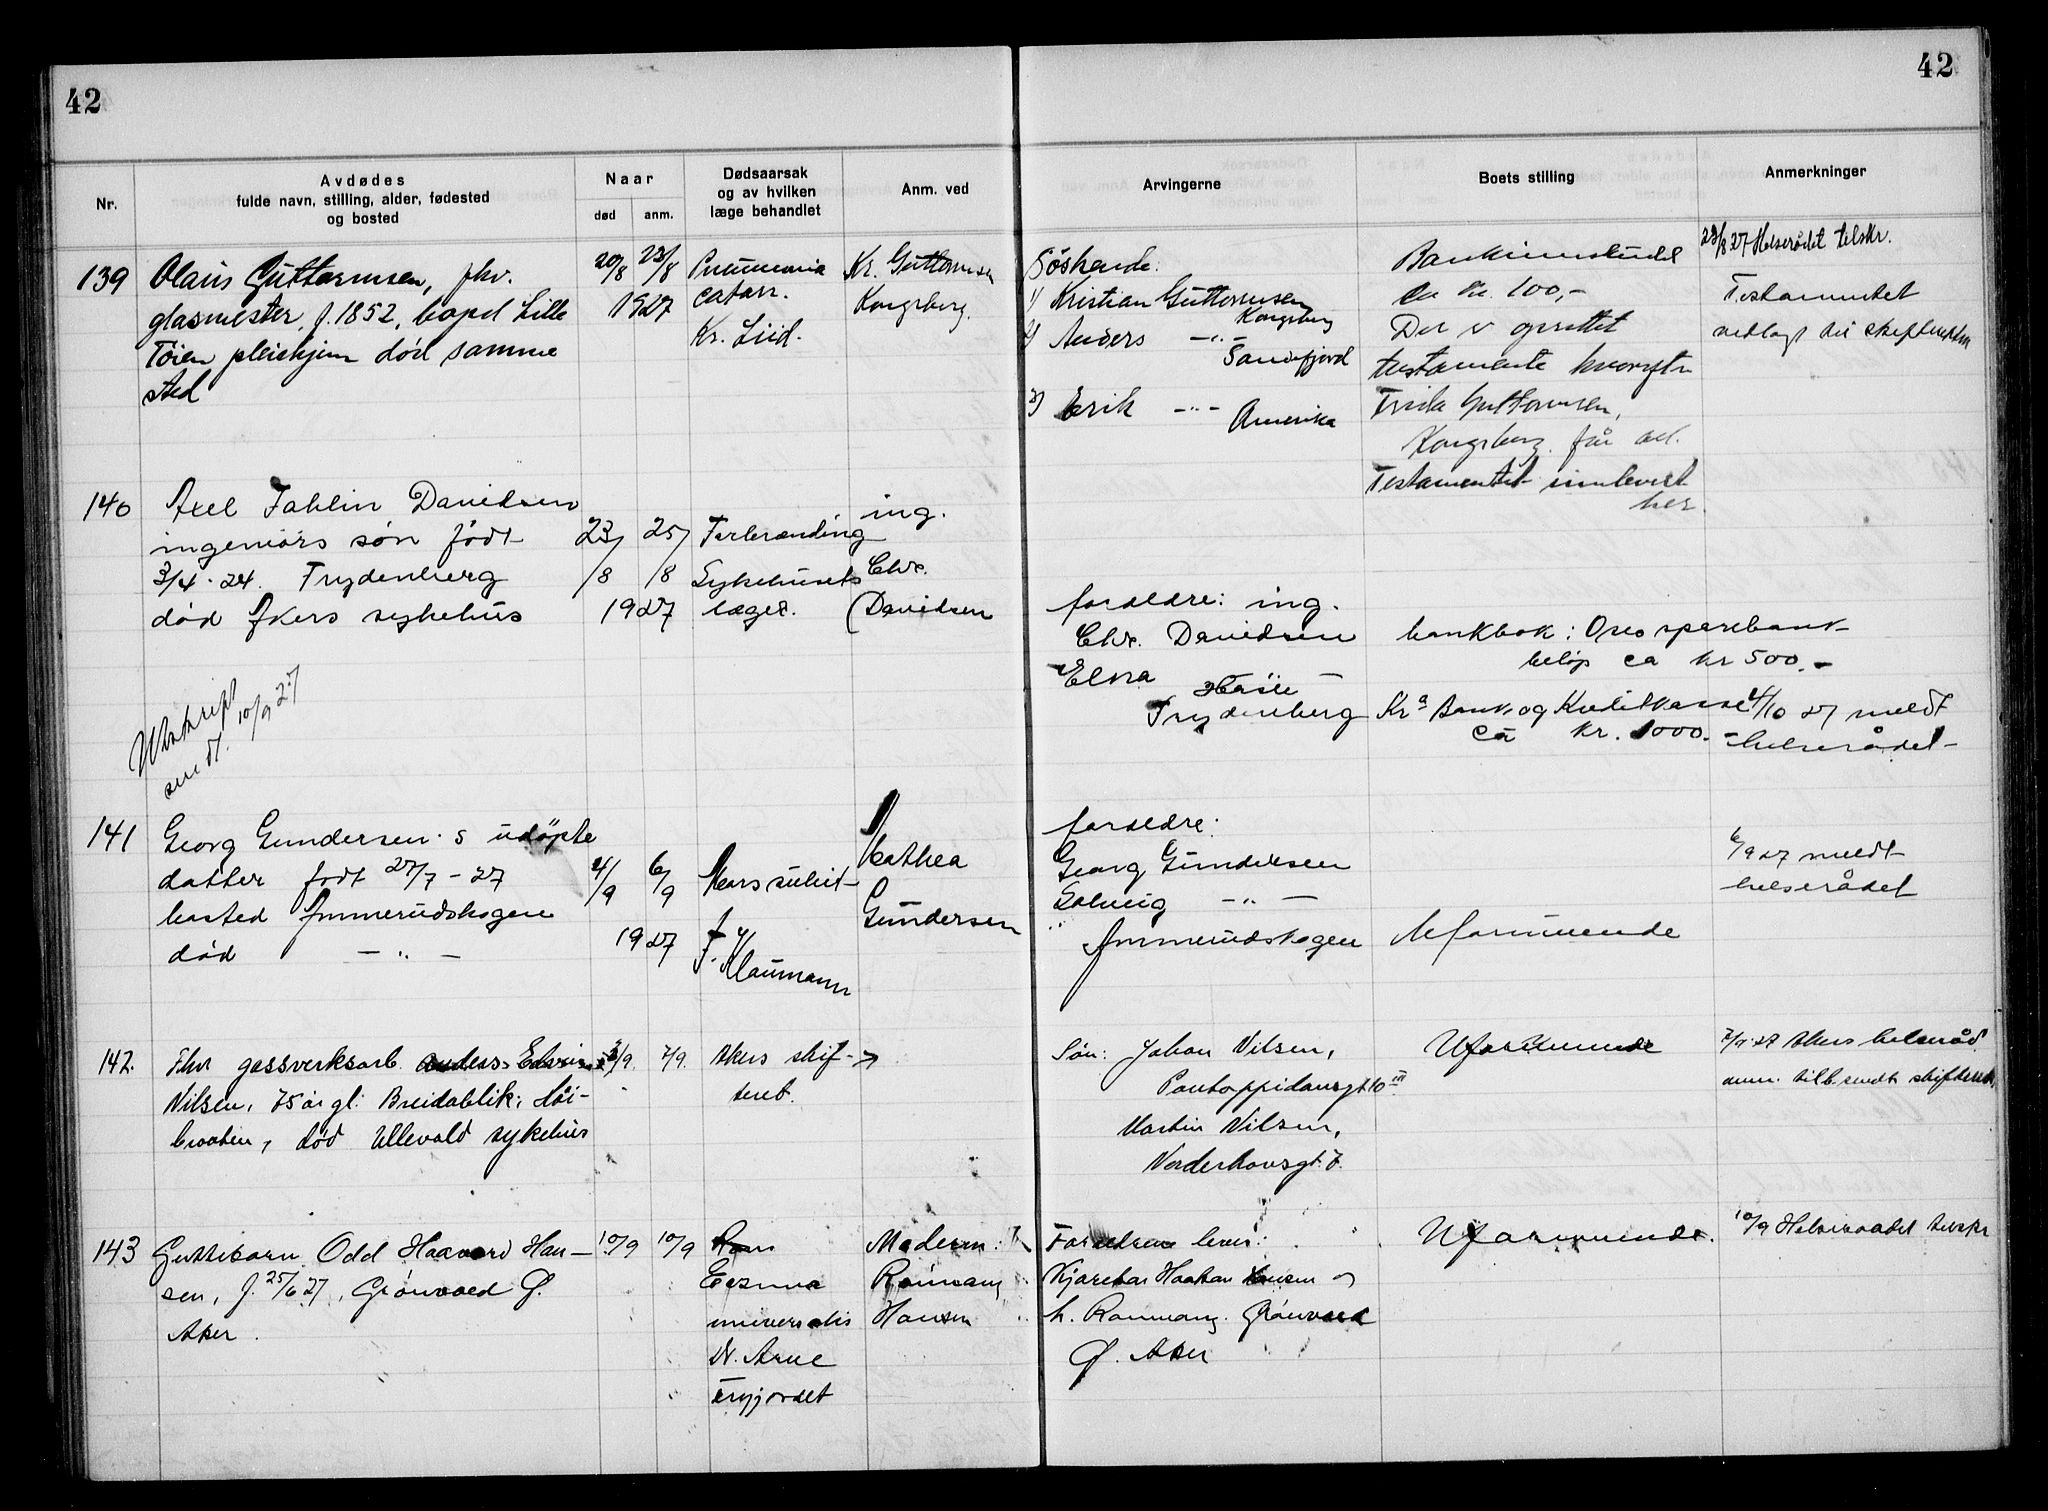 42
42
Nr.
Avdødes
fulde navn, stilling, alder, fødested
og bosted
Naar
død
anm.
Dødsaarsak
og av hvilken
læge behandlet
Anm. ved
Arvingerne
Boets stilling
Anmerkninger
139
Olaus Guttormsen, fhv.
glasmester, f. 1852, bopel Lille
Tøien pleiehjem død samme
sted
20/8 23/8
1927
Pneumonia
catarr.
Kr. Guttormsen
Kongsberg.
Søskende:
1) Kristian Guttormsen
Kongsberg
2) Anders -"-
Sandefjord
3) Erik -"- Amerika
Bankinnskudd
ca kr. 100,-
Der er oprettet
testamente hvorefter
Guttormsen,
Kongsberg får alt.
Testamentet innlevert
her.
23/8 27 Helserådet tilskr.
Testamentet
vedlagt til skifteretten
140
Axel Fahlin Davidsen
ingeniørs søn født
3/4-24. Frydenberg
død Akers sykehus
23/8 25/8
1927
Forbrænding
Sykehusets
læger.
ing.
Chr.
Davidsen
foreldre: ing.
Chr. Davidsen
Elna
Frydenberg
bankbok: Oslo sparebank
beløp ca kr 500.-
Kra Bank og Kreditkasse
ca kr. 1000.-
4/10 27 meldt
helserådet-
Utskrift
sendt. 10/9 27
141
Georg Gundersen's udøpte
datter født 27/7-27
bosted Ammerudskogen
død -"-
4/9 6/9
1927
Mors subit-
Mathea
Gundersen
foreldre:
Georg Gundersen
Solveig -"-
Ammerudskogen
Uformuende
6/9 27 meldt
helserådet
142.
Fhv gassverksarb. Anders
Nilsen, 75 år gl. Breidablik, Høi-
braaten, død Ullevold sykehus
3/9. 7/9.
Akers skif-
teret.
Søn: Johan Nilsen,
Pontoppidansgt 10 III
Martin Nilsen,
Norderhovsgt. 7.
Uformuende
Akers helseråd
anm. tilb.sendt skifterett
143
Guttebarn Odd Haavard Han-
sen, f. 25/6 27, Grønvold Ø.
Aker.
10/9 10/9
Eczema
universalis
Dr. Arne
Moderen:
Hansen
Foreldrene lever:
Haakon Hansen og
h. Grønvold
Ø. Aker
Uformuende.
10/9 Helseraadet tilskr